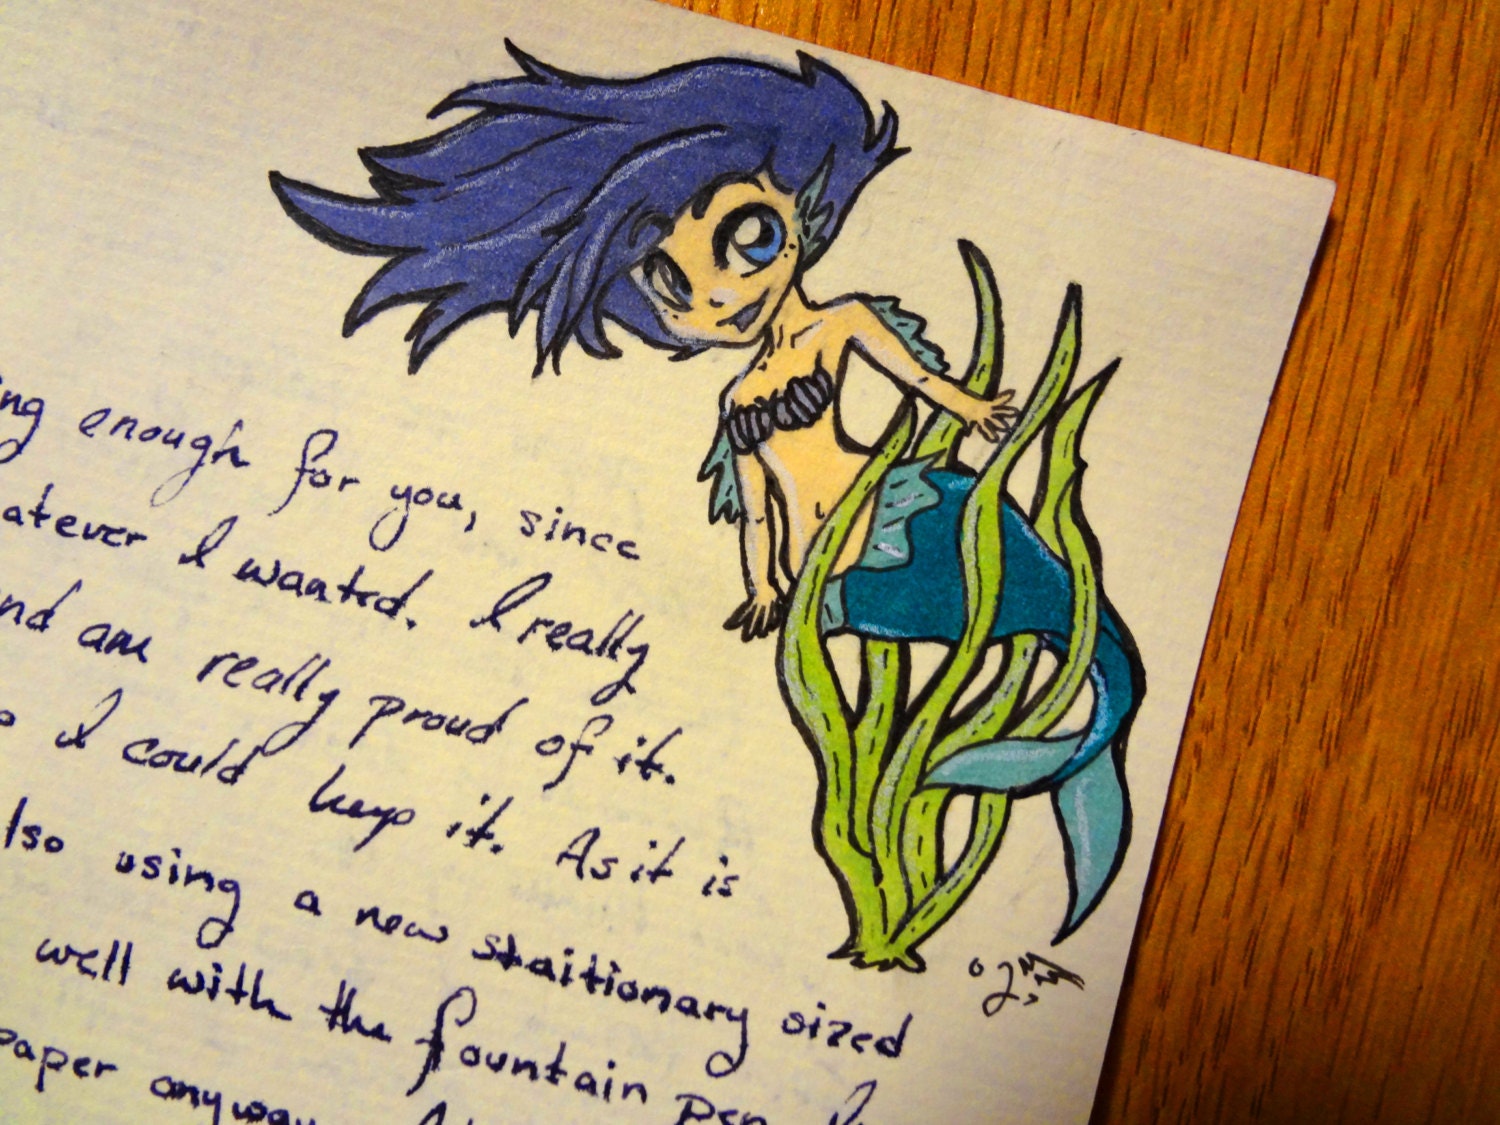 ing enough for you, since
atever I wanted. I really
nd am really proud of it.
I could keep it. As it is
lso using a new staitionary sized
well with the fountain pen. I
paper anyway.